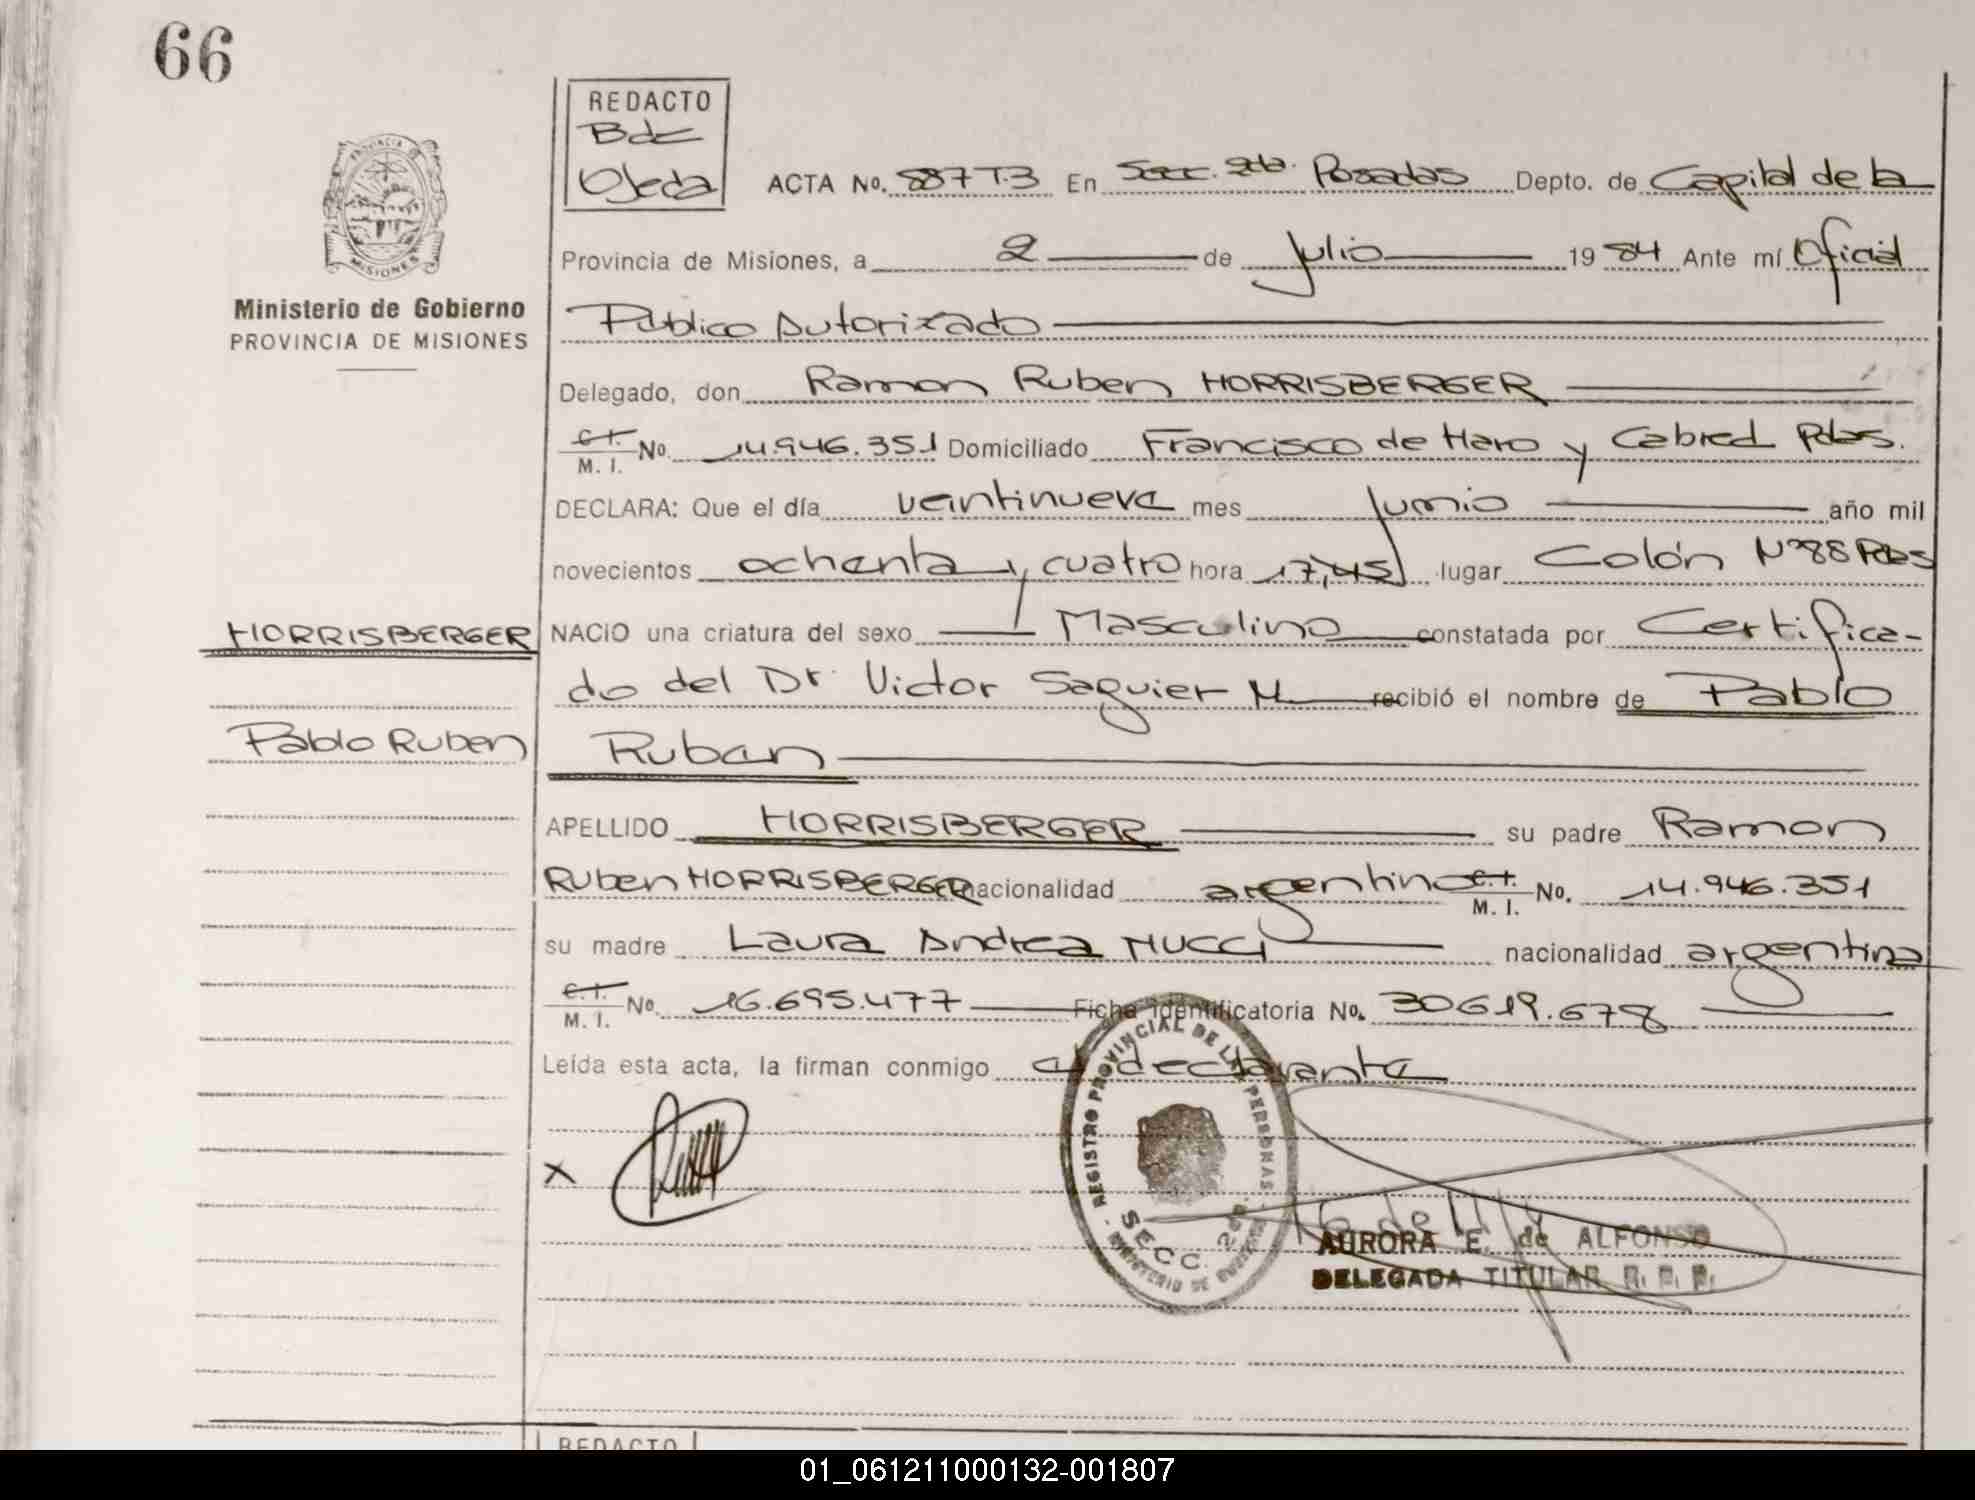 66
REDACTO
Bde
Ojeda
PROVINCIA DE
MISIONES
Ministerio de Gobierno
PROVINCIA DE MISIONES
ACTA No. 887 T.3 En Secc. 2da. Posadas Depto. de Capital de la
Provincia de Misiones, a 2 de Julio 1984 Ante mí Oficial
Público Autorizado
Delegado, don Ramon Ruben HORRISBERGER
C.I. M. I. No. 14.946.351 Domiciliado Francisco de Haro y Cabred Pdas.
DECLARA: Que el día veintinueve mes Junio año mil
novecientos ochenta y cuatro hora 17,45 lugar Colón N°88 Pdas
HORRISBERGER
NACIO una criatura del sexo Masculino constatada por Certifica-
do del Dr. Victor Saguier M. recibió el nombre de Pablo
Pablo Ruben
Ruben
APELLIDO HORRISBERGER su padre Ramon
Ruben HORRISBERGER nacionalidad argentino C.I. M. I. No. 14.946.351
su madre Laura Andrea MUCCI nacionalidad argentina
C.I. M. I. No. 16.695.477 Ficha identificatoria No. 30619.678
Leída esta acta, la firman conmigo el declarante
X
REGISTRO PROVINCIAL DE LAS PERSONAS
SECC. 2da.
MINISTERIO DE GOBIERNO
AURORA E. de ALFONSO
DELEGADA TITULAR R. P. P.
REDACTO
01_061211000132-001807